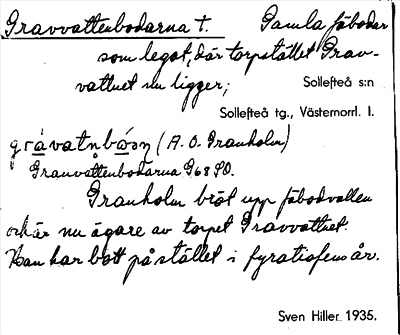 Gravvattenbodarna t. Gamla fäbodar
som legat, där torpstället Grav-
vattnet nu ligger;
Sollefteå s:n
Sollefteå tg., Västernorrl. l.
grávatnbòan (A. O. Granholm)
Granvattenbodarna G68SO.
Granholm bröt upp fäbodvallen
och är nu ägare av torpet Gravvattnet.
Han har bott på stället i fyratiofem år.
Sven Hiller 1935.